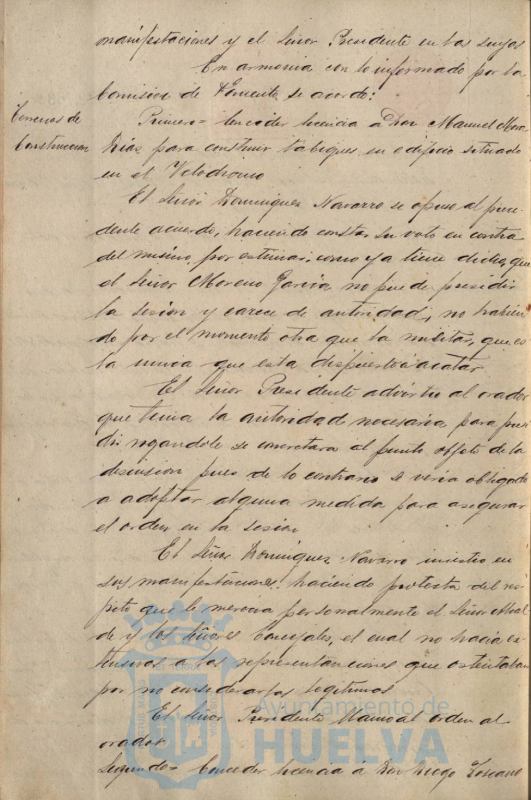 manifestaciones y el Señor Presidente en las suyas
En armonia con lo informado por la
Comision de Fomento, se acordó:
Licencias de
Construccion
Primero= Conceder licencia a Don Manuel Mora
Dias para construir tabiques en edificio situado
en el Velodromo
El Señor Dominguez Navarro se opuso al prece-
dente acuerdo, haciendo constar su voto en contra
del mismo, por estimar, como ya tiene dicho, que
el Señor Moreno Garcia no puede presidir
la sesion y carece de autoridad, no habien-
do por el momento otra que la militar, que es
la unica que esta dispuesto a acatar
El Señor Presidente advirtio al orador
que tenia la autoridad necesaria para presi-
dir rogandole se concretara al punto objeto de la
discusion pues de lo contrario se veria obligado
a adoptar alguna medida para asegurar
el orden en la sesion
El Señor Dominguez Navarro insistio en
sus manifestaciones haciendo protesta del res-
peto que le merecia personalmente el Señor Alcal
de y los Señores Concejales, el cual no hacia ex-
tensivas a las representaciones que ostentaban
por no considerarlas legitimas
El Señor Presidente llamó al orden al
orador
Segundo= Conceder licencia á Don Diego Toscano
Ayuntamiento de
HUELVA